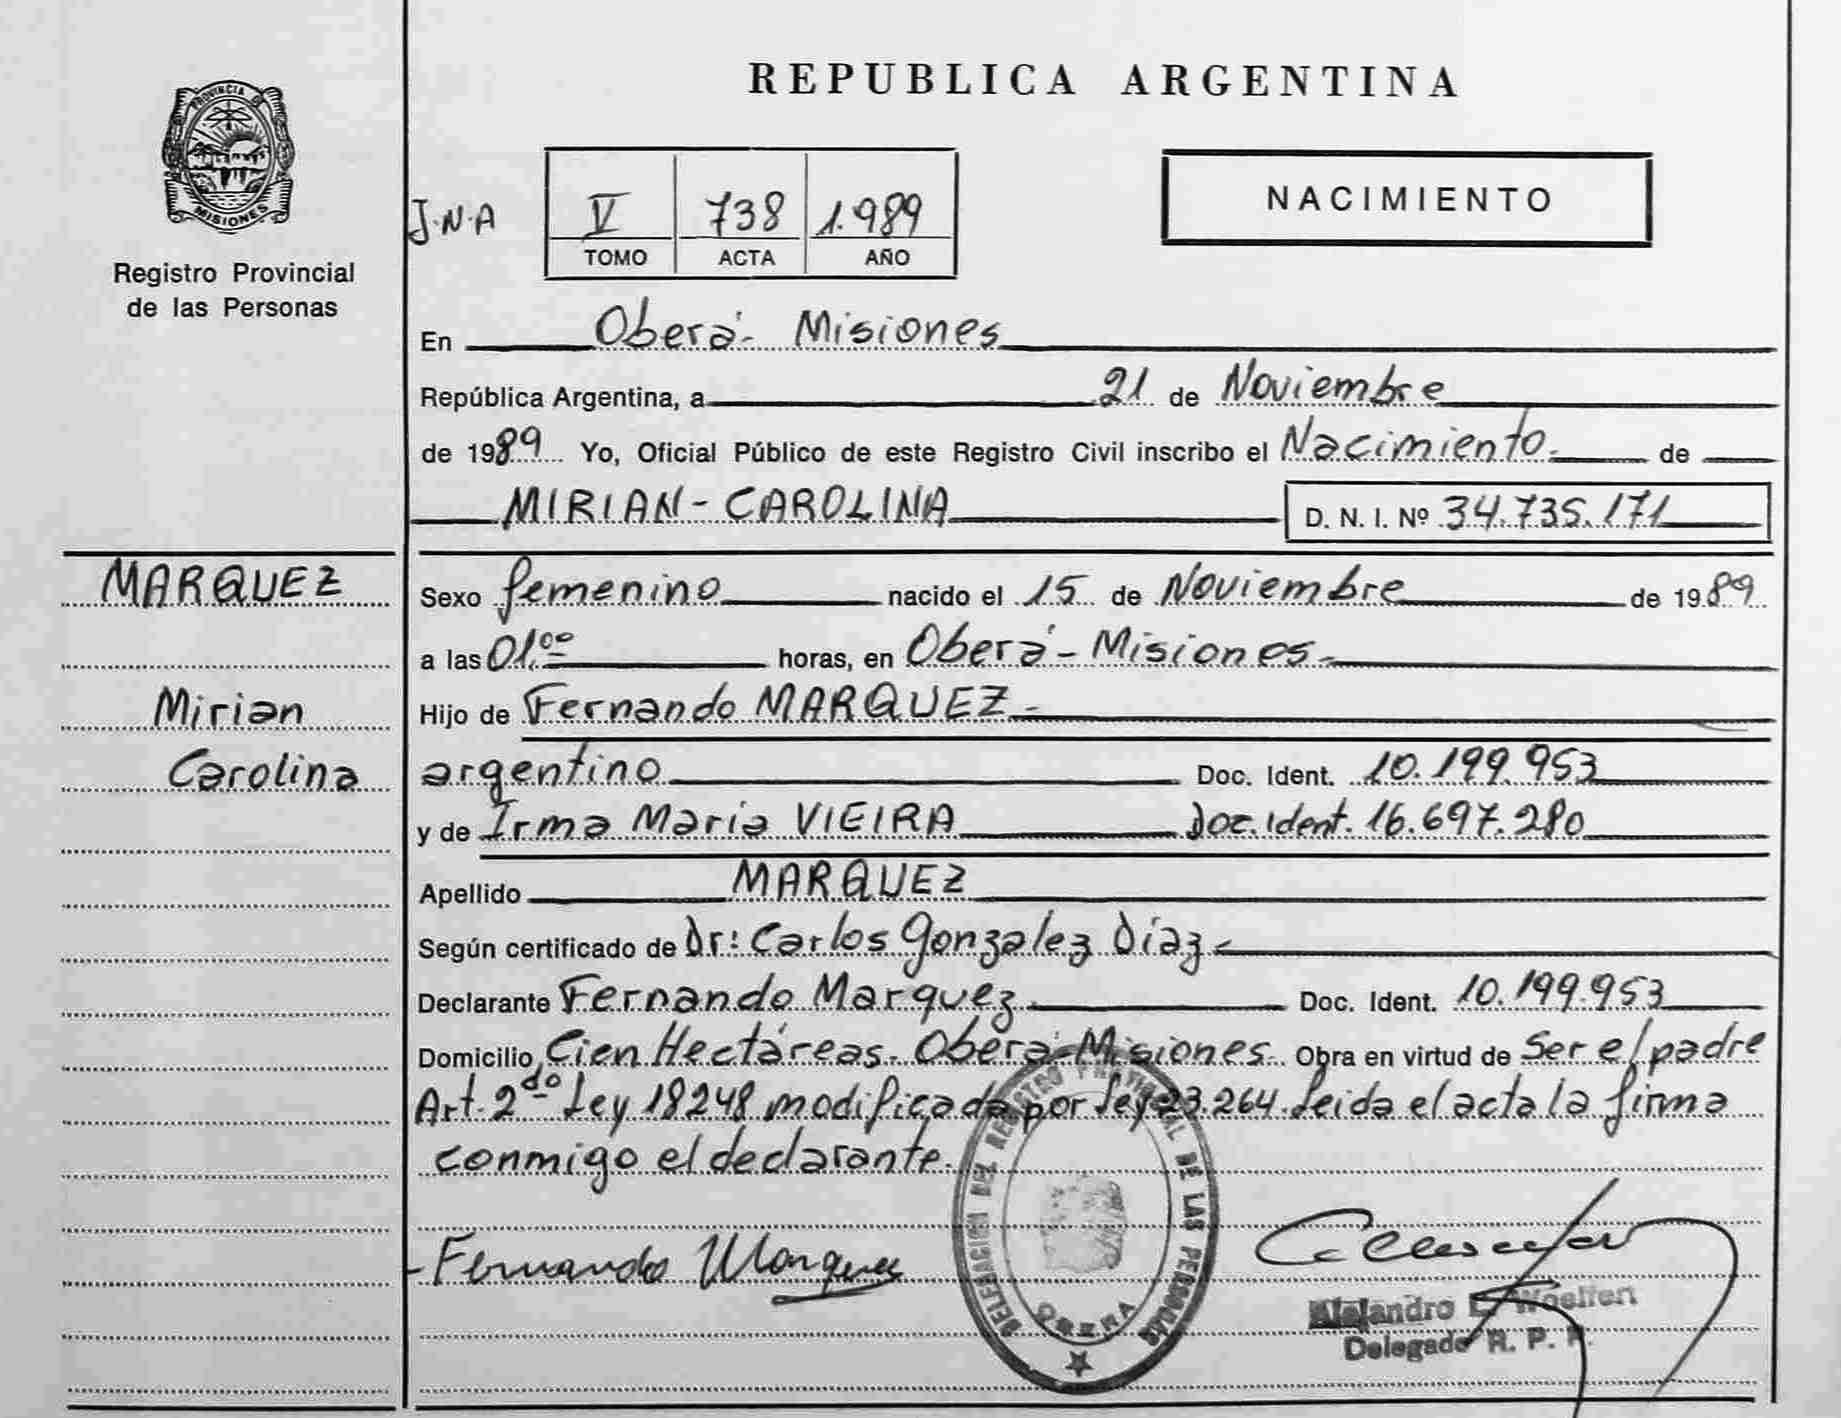 REPUBLICA ARGENTINA
PROVINCIA DE
MISIONES
Registro Provincial
de las Personas
J.N.A
V 738 1.989
TOMO ACTA AÑO
NACIMIENTO
En Oberá- Misiones
República Argentina, a 21 de Noviembre
de 1989 Yo, Oficial Público de este Registro Civil inscribo el Nacimiento.- de
MIRIAN-CAROLINA D. N. I. Nº 34.735.171
MARQUEZ
Mirian
Carolina
Sexo femenino nacido el 15 de Noviembre de 1989
a las 01.00 horas, en Oberá- Misiones.-
Hijo de Fernando MARQUEZ.-
argentino Doc. Ident. 10.199.953
y de Irma Maria VIEIRA Doc. Ident. 16.697.280
Apellido MARQUEZ
Según certificado de Dr: Carlos Gonzalez Díaz.-
Declarante Fernando Marquez. Doc. Ident. 10.199.953
Domicilio Cien Hectáreas. Oberá-Misiones. Obra en virtud de Ser el padre
Art. 2do Ley 18248 modificada por ley 23.264. Leida el acta la firma
conmigo el declarante.
DELEGACION DEL REGISTRO PROVINCIAL DE LAS PERSONAS
OBERA
Fernando Marquez
Alejandro L. Woelfert
Delegado R. P. P.